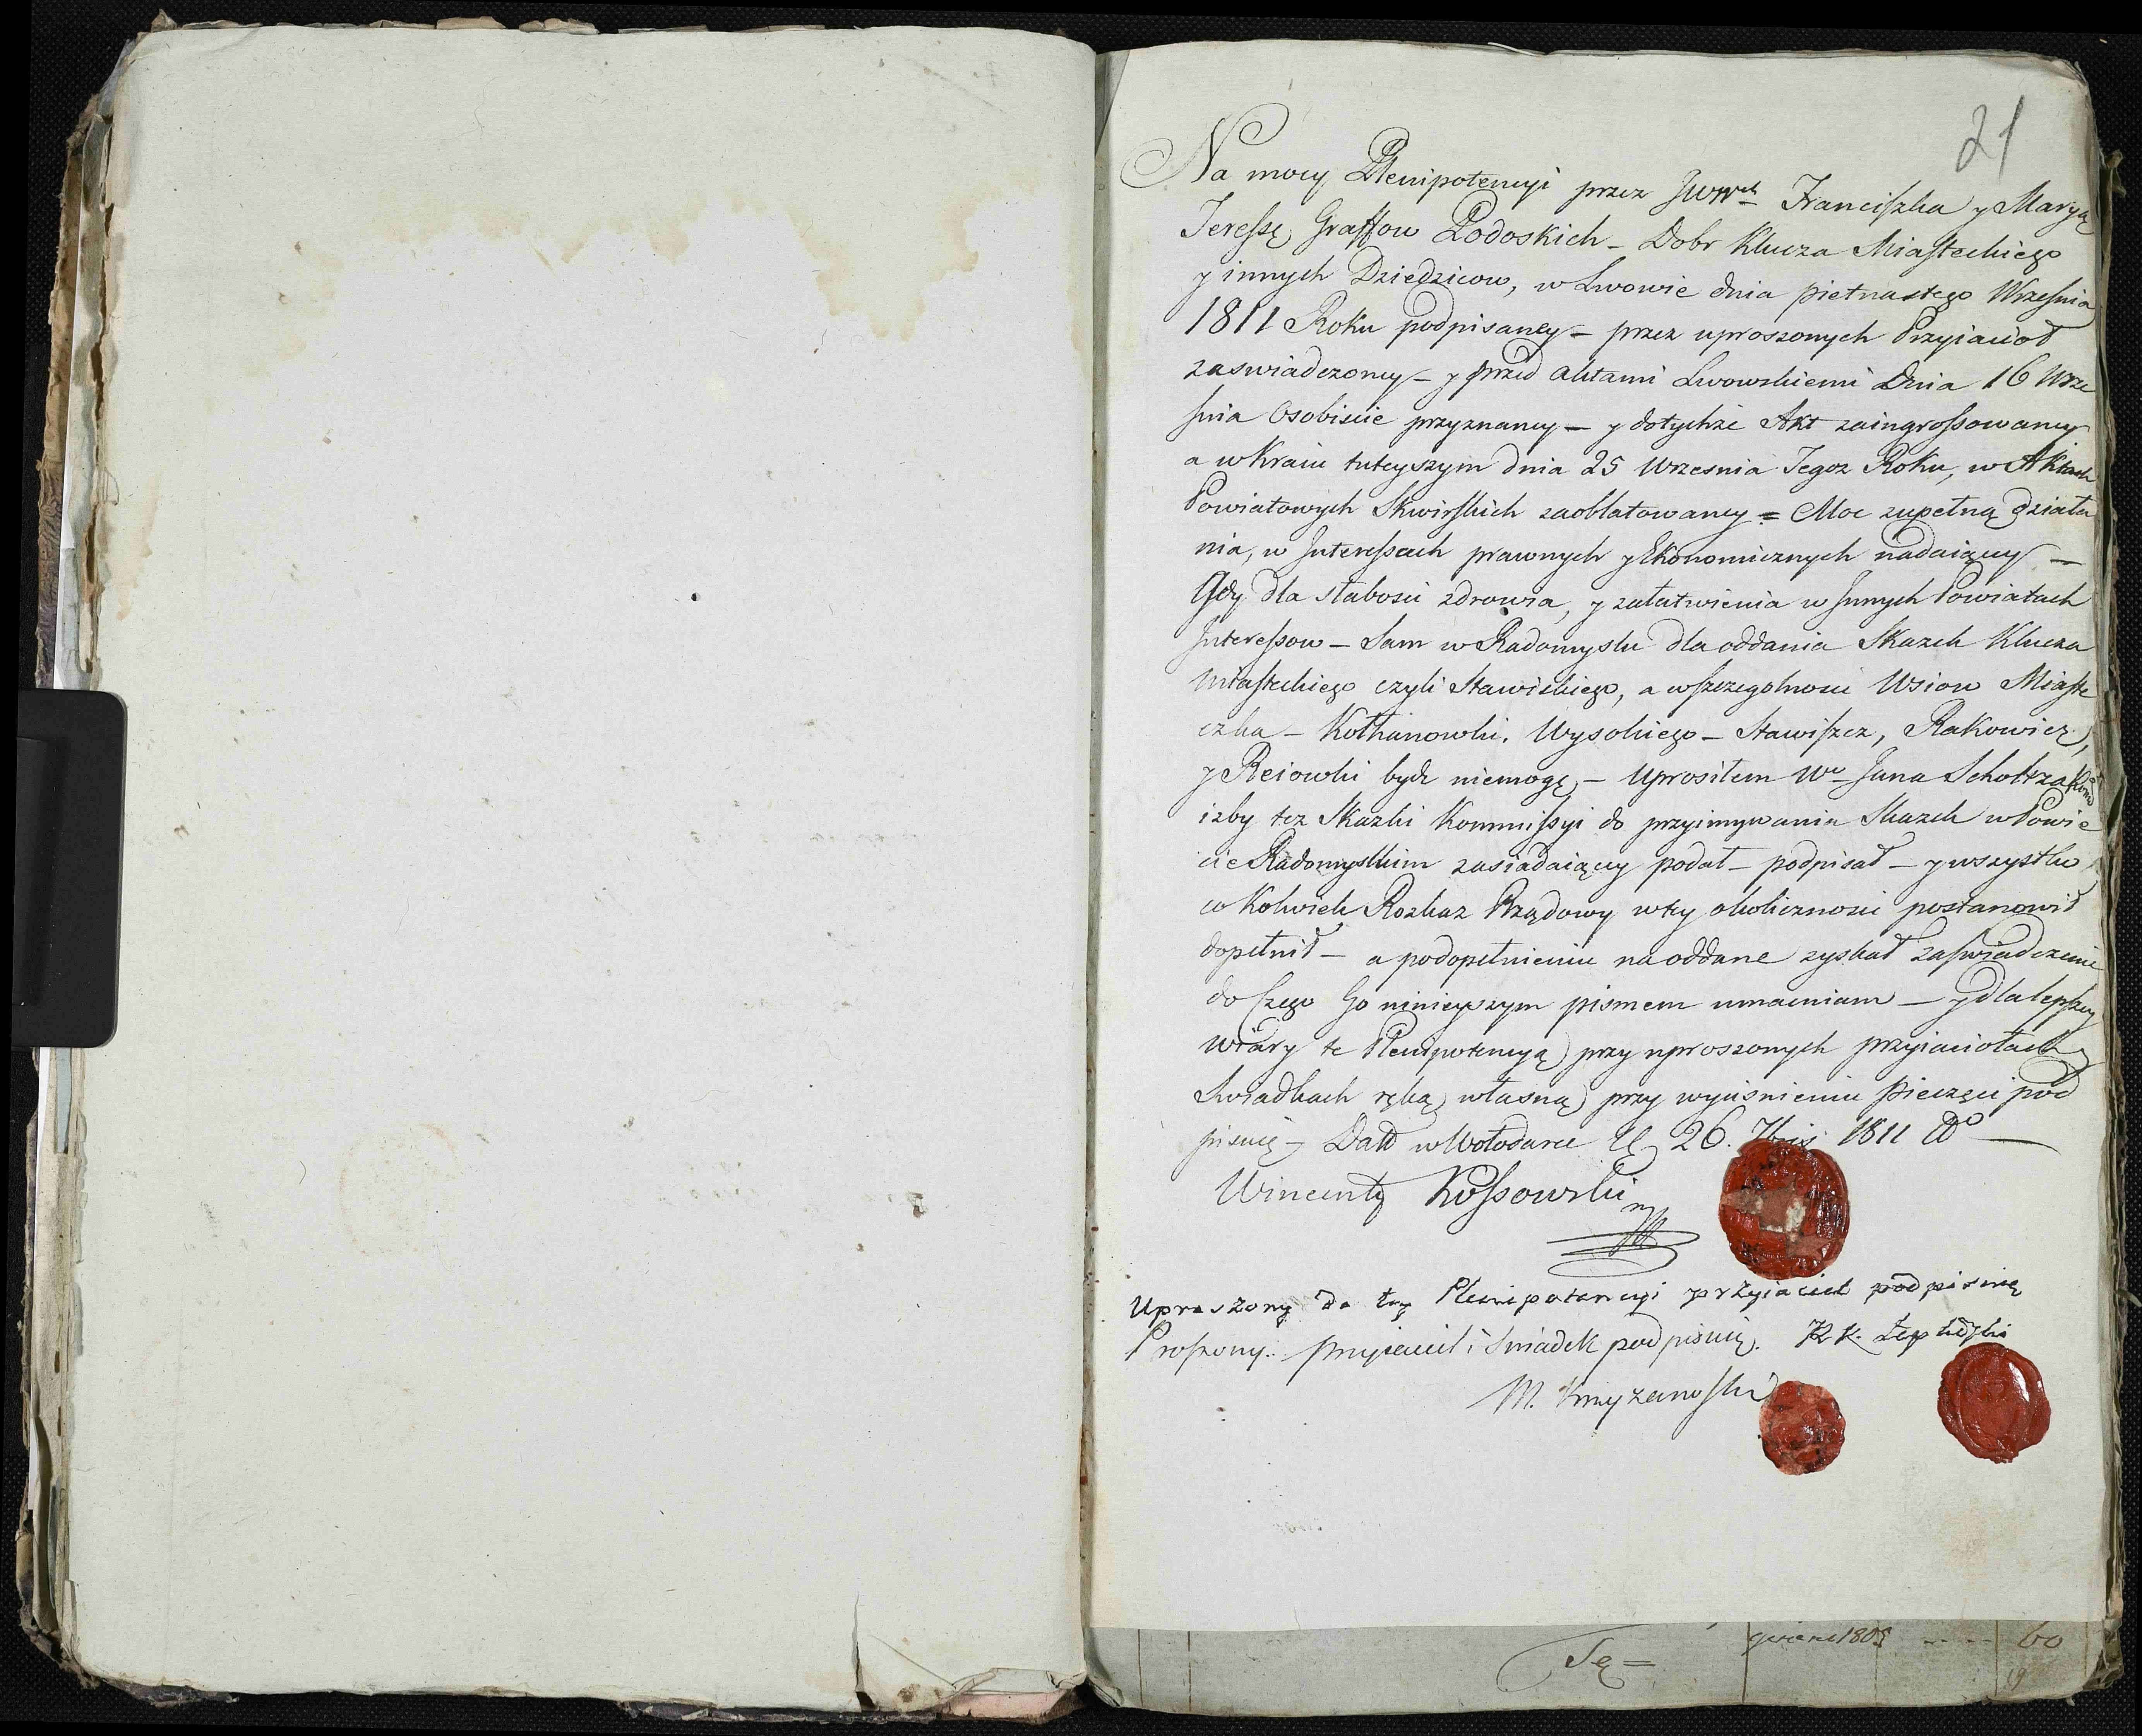 21
Na mocy Plenipotencyi przez JWWch Franciszka y Maryą
Teressę Graffow Podoskich – Dobr Klucza Miasteckiego
y innych Dziedzicow, w Lwowie dnia pietnastego Wrzesnia
1811 Roku podpisaney – przez uproszonych Przyiacioł
zaswiadczoney – y przed aktami Lwowskiemi Dnia 16 Wrze
snia Osobiscie przyznaney – y dotychże Akt zaingrossowaney
a w Kraiu tuteyszym dnia 25 Wrzesnia Tegoz Roku, w Aktach
Powiatowych Skwirskich zaoblatowaney = Moc zupełną działa
nia, w Interessach prawnych y Ekonomicznych nadaiącey –
Gdy dla słabosci zdrowia, y załatwienia w Innych Powiatach
Interessow – Sam w Radomyslu dla oddania Skazek Klucza
Miasteckiego czyli Stawiskiego, a wszczegolnosci Wsiow Miaste
czka – Kothanowki. Wysokiego – Stawiszcz, Rakowicz,
y Reiowki bydz niemogę – Uprosiłem We Jana Scholtza
izby tez Skazki Kommissyi do przyimywania Skazek w Powie
cie Radomyslkim zasiadaiącey podał – podpisał – y wszystko
co Kolwiek Rozkaz Rządowy w tey okolicznosci postanowił
dopełnił – a po dopełnieniu na oddane zyskał zaswiadczenie
do Czego Go ninieyszym pismem umacniam – y dla lepszey
wiary te Plenipotencyą przy uproszonych przyiaciołach
Swiadkach ręką własną przy wycisnieniu Pieczęci pod
pisuię – Datt w Wołodarce 26. 7bris 1811 Ro –
Wincenty Kossowski
mp
Uproszony do tey Plenipotencyi przyiaciel podpisuię
Proszony przyiaciel i Swiadek podpisuię.
M. Krzyzanowski
Tę =
1805 60